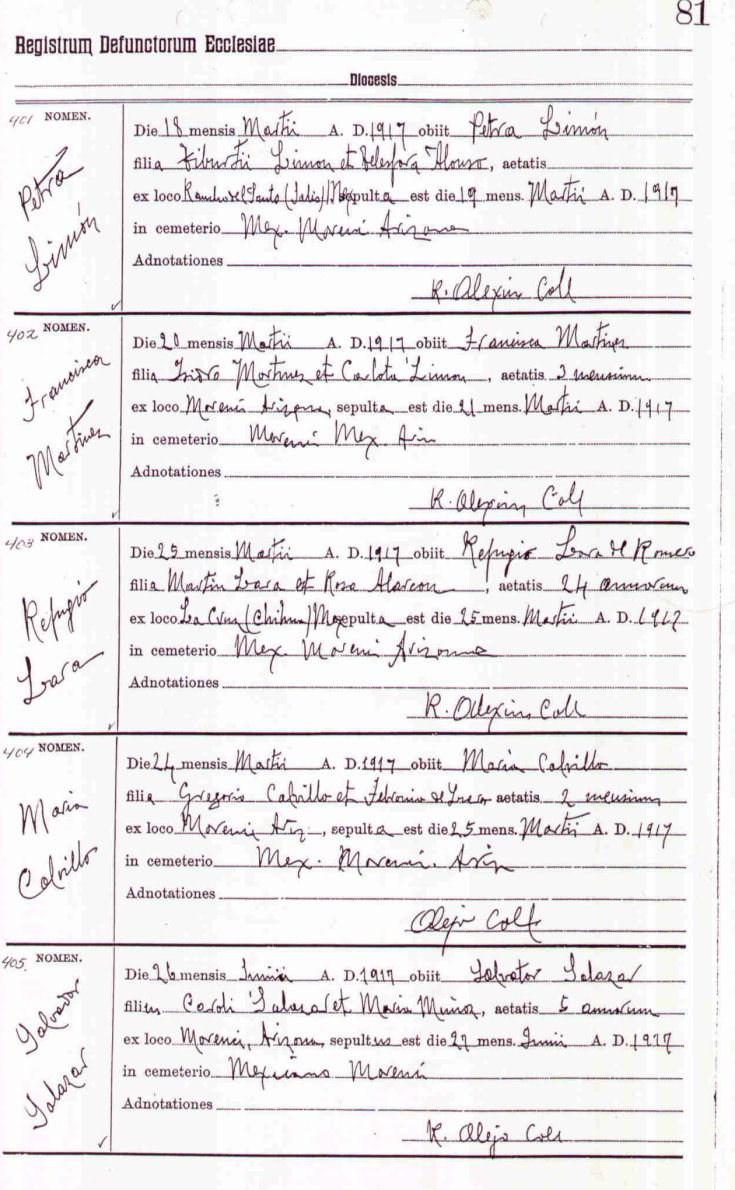 81
Registrum Defunctorum Ecclesiae
Diocesis
401 NOMEN.
Petra
Limón
Die 18 mensis Martii A. D. 1917 obiit Petra Limón
filia Tiburtii Limon et Telesfora Alonso, aetatis
ex loco Rancho del Santo (Jalis) Mex sepulta est die 19 mens. Martii A. D. 1917
in cemeterio Mex. Morenci Arizona
Adnotationes
R. Alexius Coll
402 NOMEN.
Francisca
Martinez
Die 20 mensis Martii A. D. 1917 obiit Francisca Martinez
filia Isidro Martinez et Carlota Limon, aetatis 3 mensium
ex loco Morenci Arizona, sepulta est die 21 mens. Martii A. D. 1917
in cemeterio Morenci Mex Ariz
Adnotationes
R. Alexius Coll
403 NOMEN.
Refugio
Lara
Die 25 mensis Martii A. D. 1917 obiit Refugio Lara de Romero
filia Martin Lara et Rosa Alarcon, aetatis 24 annorum
ex loco La Cruz (Chihua) Mex sepulta est die 25 mens. Martii A. D. 1917
in cemeterio Mex. Morenci Arizona
Adnotationes
R. Alexius Coll
404 NOMEN.
Maria
Calvillo
Die 24 mensis Martii A. D. 1917 obiit Maria Calvillo
filia Gregorio Calvillo et Febronia de aetatis 2 mensium
ex loco Morenci Ariz, sepulta est die 25 mens. Martii A. D. 1917
in cemeterio Mex. Morenci. Ariz
Adnotationes
Alejo Coll
405. NOMEN.
Salvador
Salazar
Die 26 mensis Junii A. D. 1917 obiit Salvator Salazar
filius Caroli Salazar et Maria Muñoz, aetatis 5 annorum
ex loco Morenci, Arizona, sepultus est die 27 mens. Junii A. D. 1917
in cemeterio Mexicano Morenci
Adnotationes
R. Alejo Coll